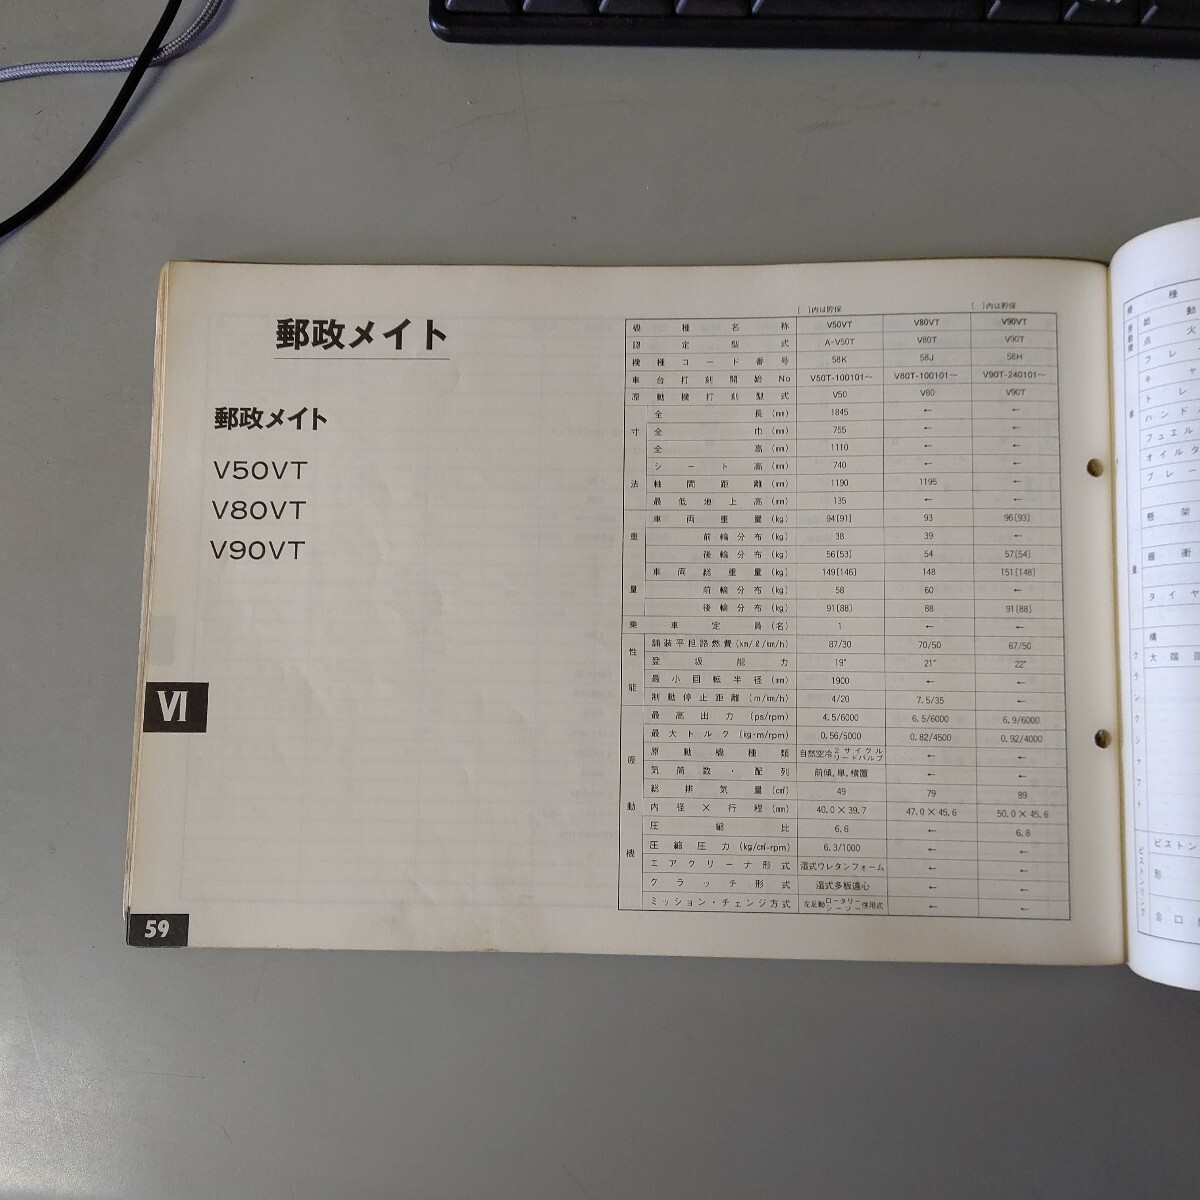 郵政メイト
郵政メイト
V50VT
V80VT
V90VT
VI
59
[ ]内は貯保 [ ]内は貯保
機種名称 V50VT V80VT V90VT
認定型式 A-V50T V80T V90T
機種コード番号 58K 58J 58H
車台打刻開始No V50T-100101〜 V80T-100101〜 V90T-240101〜
原動機打刻型式 V50 V80 V90T
寸法
全長(mm) 1845 ← ←
全巾(mm) 755 ← ←
全高(mm) 1110 ← ←
シート高(mm) 740 ← ←
軸間距離(mm) 1190 1195 ←
最低地上高(mm) 135 ← ←
重量
車両重量(kg) 94[91] 93 96[93]
前輪分布(kg) 38 39 ←
後輪分布(kg) 56[53] 54 57[54]
車両総重量(kg) 149[146] 148 151[148]
前輪分布(kg) 58 60 ←
後輪分布(kg) 91[88] 88 91[88]
乗車定員(名) 1 ← ←
性能
舗装平坦路燃費(km/ℓ/km/h) 87/30 70/50 67/50
登坂能力 19° 21° 22°
最小回転半径(mm) 1900 ← ←
制動停止距離(m/km/h) 4/20 7.5/35 ←
原動機
最高出力(ps/rpm) 4.5/6000 6.5/6000 6.9/6000
最大トルク(kg-m/rpm) 0.56/5000 0.82/4500 0.92/4000
原動機種類 自然空冷2サイクルリードバルブ ← ←
気筒数・配列 前傾,単,横置 ← ←
総排気量(cm³) 49 79 89
内径×行程(mm) 40.0×39.7 47.0×45.6 50.0×45.6
圧縮比 6.6 ← 6.8
圧縮圧力(kg/cm²-rpm) 6.3/1000 ← ←
エアクリーナ形式 湿式ウレタンフォーム ← ←
クラッチ形式 湿式多板遠心 ← ←
ミッション・チェンジ方式 左足動ロータリーシーソー併用式 ← ←
機種
原動機
始動
点火
フレ
キャ
トレ
ハンド
フュエル
オイルタ
ブレー
懸架
緩衝
タイヤ
クランクシャフト
構
大端部
ピストンリング
ピストン
形
合口